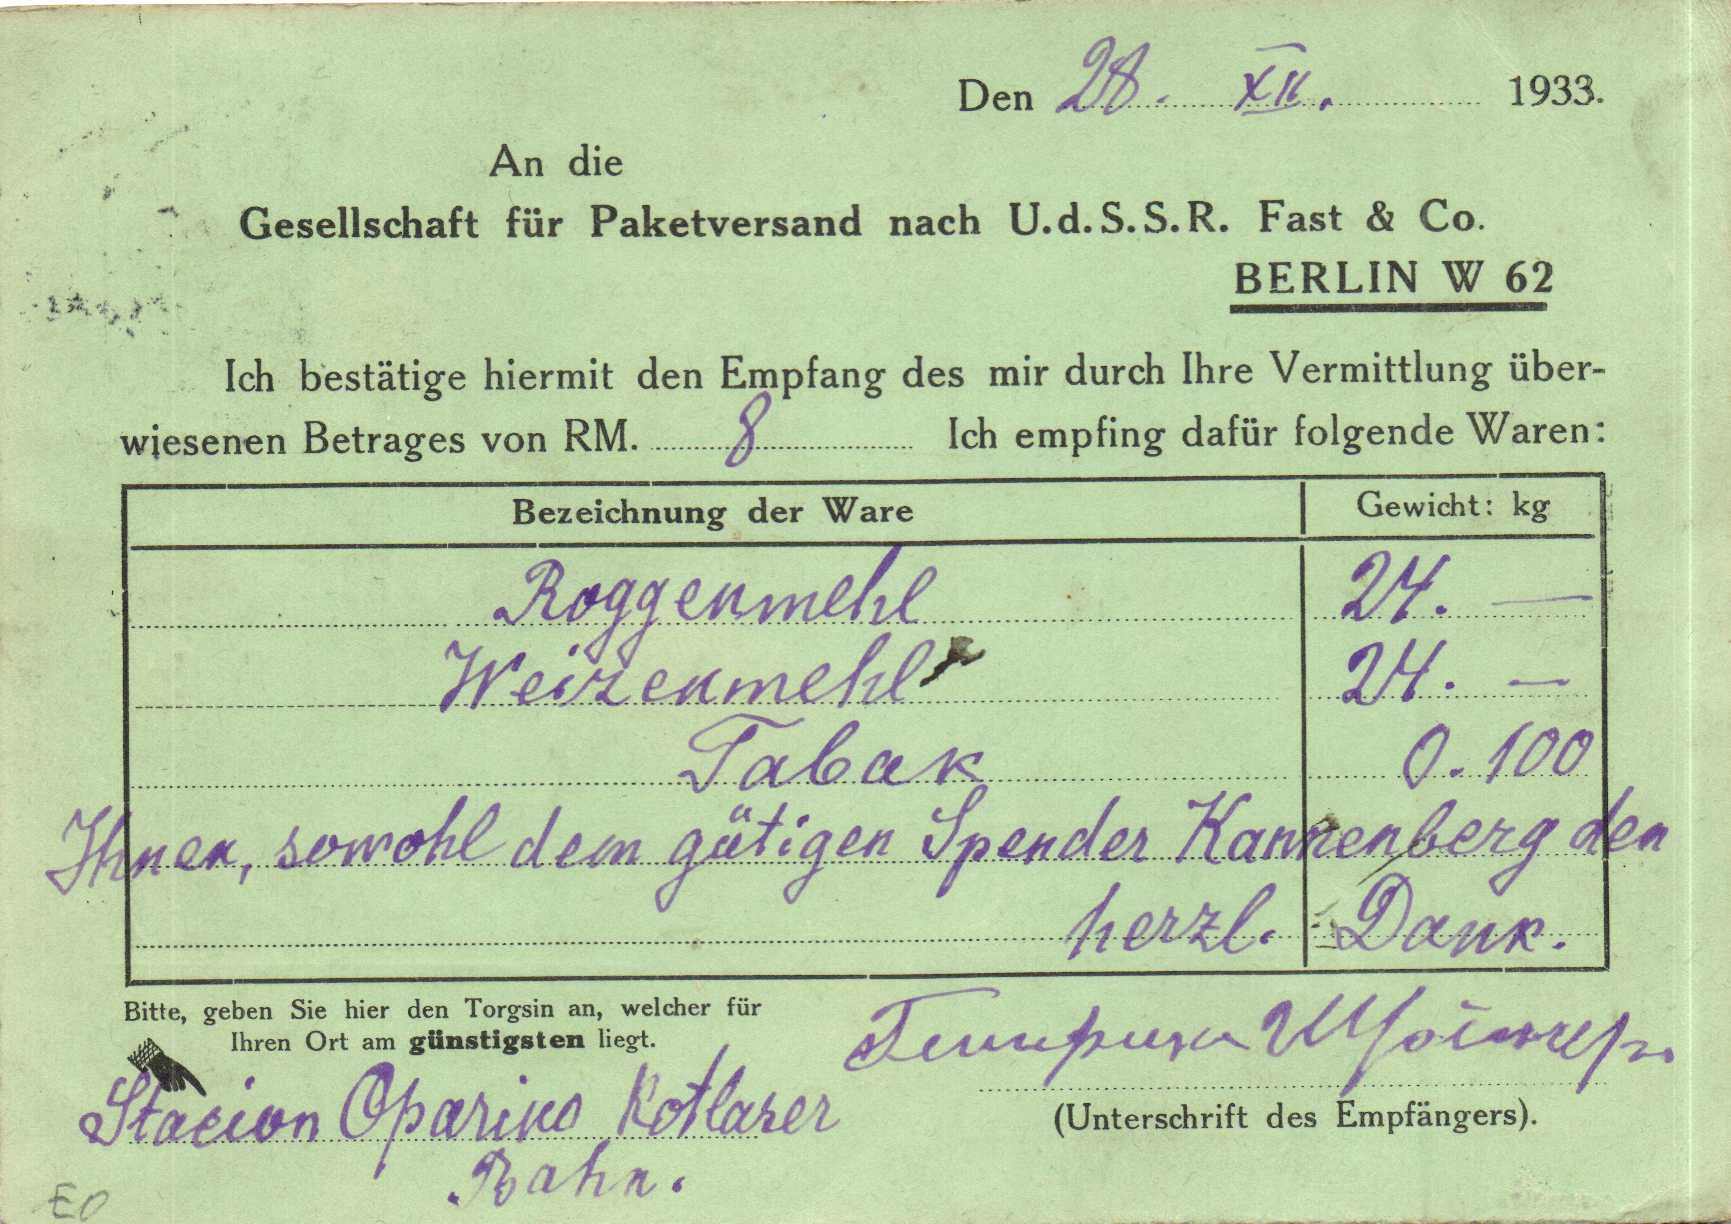 Den 28. XII. 1933.
An die
Gesellschaft für Paketversand nach U.d.S.S.R. Fast & Co.
BERLIN W 62
Ich bestätige hiermit den Empfang des mir durch Ihre Vermittlung über-
wiesenen Betrages von RM. 8 Ich empfing dafür folgende Waren:
Bezeichnung der Ware Gewicht: kg
Roggenmehl 24. —
Weizenmehl 24. —
Tabak 0.100
Ihnen, sowohl dem gütigen Spender Kannenberg den
herzl. Dank.
Bitte, geben Sie hier den Torgsin an, welcher für
Ihren Ort am günstigsten liegt.
Stacion Oparino Kotlaser
Bahn.
(Unterschrift des Empfängers).
EO